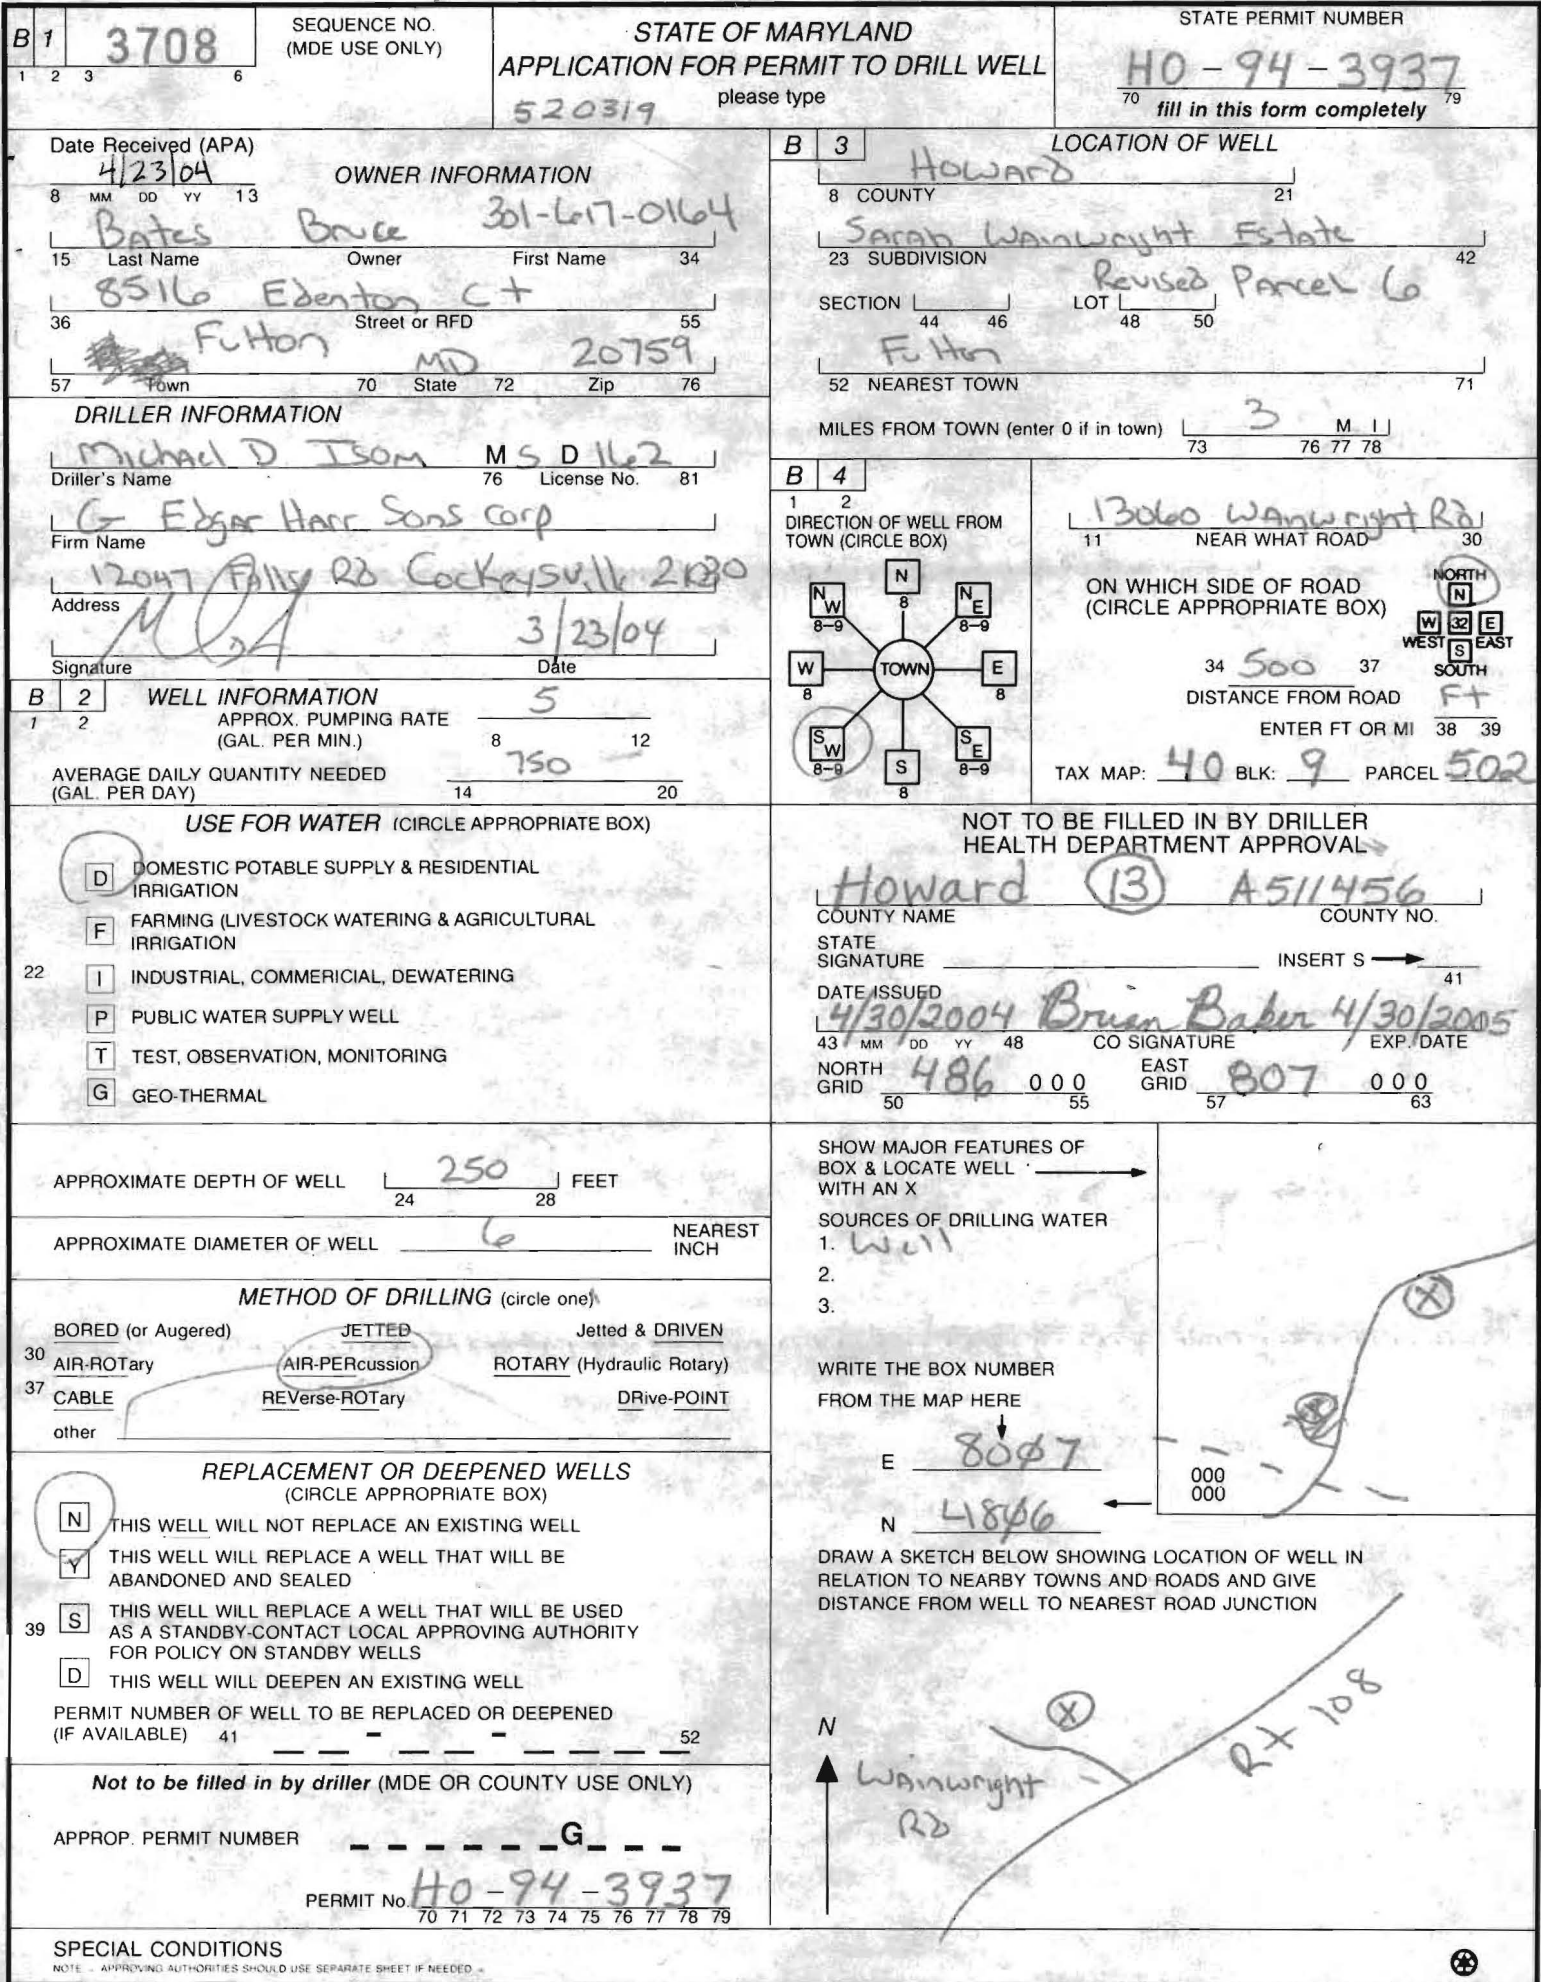 B 1
3708
1 2 3 6
SEQUENCE NO.
(MDE USE ONLY)
STATE OF MARYLAND
APPLICATION FOR PERMIT TO DRILL WELL
please type
520319
STATE PERMIT NUMBER
HO-94-3937
70 79
fill in this form completely
Date Received (APA)
4/23/04
8 MM DD YY 13
OWNER INFORMATION
301-617-0164
Bates Bruce
15 Last Name Owner First Name 34
8516 Edenton Ct
36 Street or RFD 55
Fulton MD 20759
57 Town 70 State 72 Zip 76
DRILLER INFORMATION
Michael D Isom M S D 162
Driller's Name 76 License No. 81
G Edgar Harr Sons Corp
Firm Name
12047 Falls Rd Cockeysville
Address
3/23/04
Signature Date
B 2
1 2
WELL INFORMATION
APPROX. PUMPING RATE
(GAL. PER MIN.)
5
8 12
AVERAGE DAILY QUANTITY NEEDED
(GAL. PER DAY)
750
14 20
USE FOR WATER (CIRCLE APPROPRIATE BOX)
D DOMESTIC POTABLE SUPPLY & RESIDENTIAL
IRRIGATION
F FARMING (LIVESTOCK WATERING & AGRICULTURAL
IRRIGATION
22
I INDUSTRIAL, COMMERICIAL, DEWATERING
P PUBLIC WATER SUPPLY WELL
T TEST, OBSERVATION, MONITORING
G GEO-THERMAL
APPROXIMATE DEPTH OF WELL 250 FEET
24 28
APPROXIMATE DIAMETER OF WELL 6 NEAREST
INCH
METHOD OF DRILLING (circle one)
BORED (or Augered) JETTED Jetted & DRIVEN
30 AIR-ROTary AIR-PERcussion ROTARY (Hydraulic Rotary)
37 CABLE REVerse-ROTary DRive-POINT
other
REPLACEMENT OR DEEPENED WELLS
(CIRCLE APPROPRIATE BOX)
N THIS WELL WILL NOT REPLACE AN EXISTING WELL
Y THIS WELL WILL REPLACE A WELL THAT WILL BE
ABANDONED AND SEALED
39 S THIS WELL WILL REPLACE A WELL THAT WILL BE USED
AS A STANDBY-CONTACT LOCAL APPROVING AUTHORITY
FOR POLICY ON STANDBY WELLS
D THIS WELL WILL DEEPEN AN EXISTING WELL
PERMIT NUMBER OF WELL TO BE REPLACED OR DEEPENED
(IF AVAILABLE) 41 - - 52
Not to be filled in by driller (MDE OR COUNTY USE ONLY)
APPROP. PERMIT NUMBER G
PERMIT No. HO-94-3937
70 71 72 73 74 75 76 77 78 79
SPECIAL CONDITIONS
NOTE - APPROVING AUTHORITIES SHOULD USE SEPARATE SHEET IF NEEDED -
B 3
LOCATION OF WELL
Howard
8 COUNTY 21
Sarah Wainwright Estate
23 SUBDIVISION 42
Revised Parcel 6
SECTION LOT
44 46 48 50
Fulton
52 NEAREST TOWN 71
MILES FROM TOWN (enter 0 if in town) 3 M I
73 76 77 78
B 4
1 2
DIRECTION OF WELL FROM
TOWN (CIRCLE BOX)
N
8
NW
8-9
NE
8-9
W
8
TOWN
E
8
SW
8-9
S
8
SE
8-9
13060 Wainwright Rd
11 NEAR WHAT ROAD 30
ON WHICH SIDE OF ROAD
(CIRCLE APPROPRIATE BOX)
NORTH
N
W 32 E
WEST EAST
S
SOUTH
34 500 37
DISTANCE FROM ROAD
Ft
ENTER FT OR MI 38 39
TAX MAP: 40 BLK: 9 PARCEL 502
NOT TO BE FILLED IN BY DRILLER
HEALTH DEPARTMENT APPROVAL
Howard 13 A511456
COUNTY NAME COUNTY NO.
STATE
SIGNATURE INSERT S
41
DATE ISSUED
4/30/2004 Brian Baker 4/30/2005
43 MM DD YY 48 CO SIGNATURE EXP. DATE
NORTH
GRID 486 000
50 55
EAST
GRID 807 000
57 63
SHOW MAJOR FEATURES OF
BOX & LOCATE WELL
WITH AN X
SOURCES OF DRILLING WATER
1. Well
2.
3.
X
X
WRITE THE BOX NUMBER
FROM THE MAP HERE
E 8007
N 4806
000
000
DRAW A SKETCH BELOW SHOWING LOCATION OF WELL IN
RELATION TO NEARBY TOWNS AND ROADS AND GIVE
DISTANCE FROM WELL TO NEAREST ROAD JUNCTION
N
X
Wainwright
Rd
Rt 108